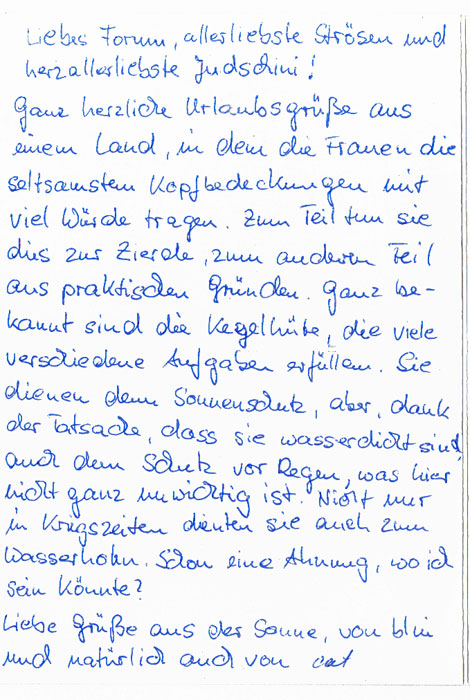 Liebes Forum, allerliebste Strösen und
herzallerliebste Judschini!
Ganz herzliche Urlaubsgrüße aus
einem Land, in dem die Frauen die
seltsamsten Kopfbedeckungen mit
viel Würde tragen. Zum Teil tun sie
dies zur Zierde, zum anderen Teil
aus praktischen Gründen. Ganz be-
kannt sind die Kegelhüte, die viele
verschiedene Aufgaben erfüllen. Sie
dienen dem Sonnenschutz, aber, dank
der Tatsache, dass sie wasserdicht sind,
auch dem Schutz vor Regen, was hier
nicht ganz unwichtig ist. Nicht nur
in Kriegszeiten dienten sie auch zum
Wasserholen. Schon eine Ahnung, wo ich
sein könnte?
Liebe Grüße aus der Sonne, von
und natürlich auch von